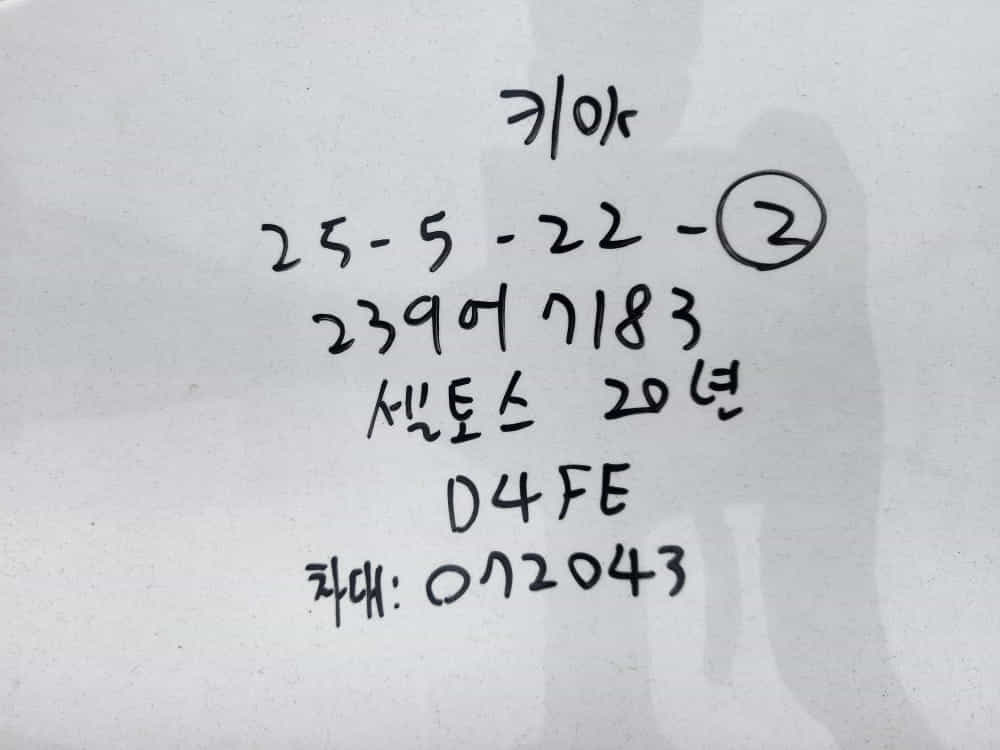 키아
25-5-22-②
239어7183
셀토스 20년
D4FE
차대: 072043